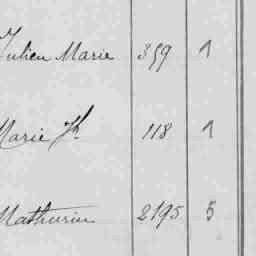 Julien Marie 359 1
Marie Jh 118 1
Mathurin 2195 5